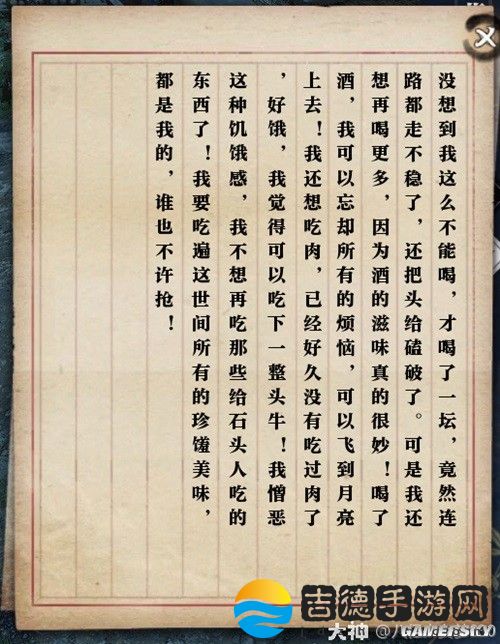 没想到我这么不能喝，才喝了一坛，竟然连
路都走不稳了，还把头给磕破了。可是我还
想再喝更多，因为酒的滋味真的很妙！喝了
酒，我可以忘却所有的烦恼，可以飞到月亮
上去！我还想吃肉，已经好久没有吃过肉了
，好饿，我觉得可以吃下一整头牛！我憎恶
这种饥饿感，我不想再吃那些给石头人吃的
东西了！我要吃遍这世间所有的珍馐美味，
都是我的，谁也不许抢！
吉德手游网
大神
GAMERSKY